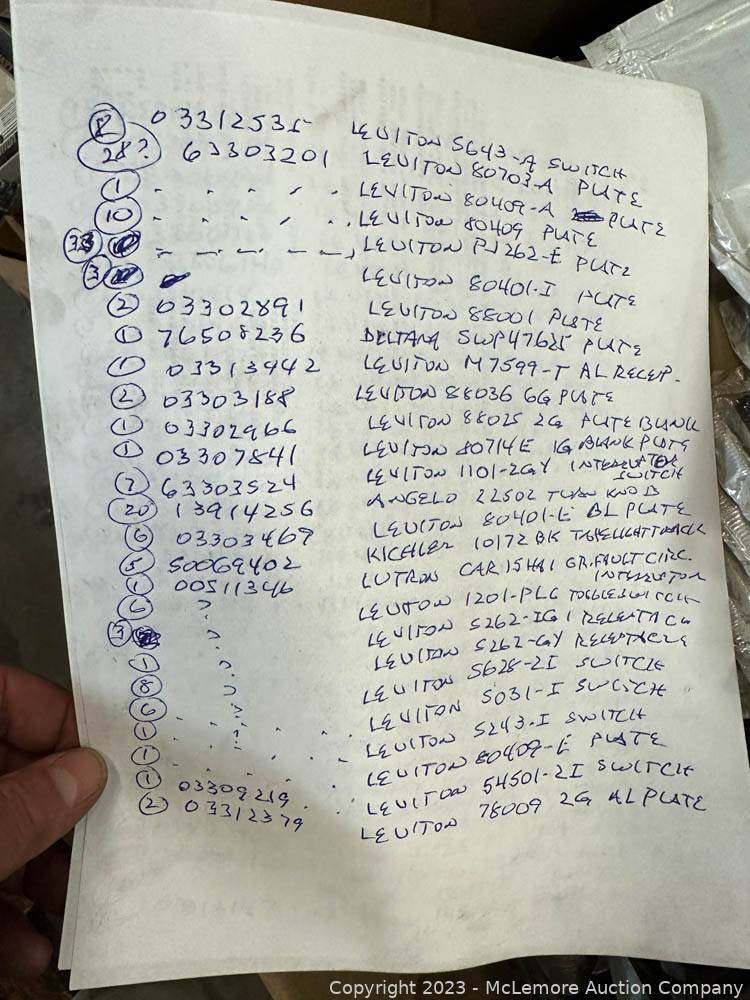 8 03312535 LEVITON 5643-A SWITCH
28? 63303201 LEVITON 80703-A PLATE
1 " " " " LEVITON 80409-A PLATE
10 " " " " LEVITON 80409 PLATE
33 LEVITON PJ262-E PLATE
3 LEVITON 80401-I PLATE
2 03302891 LEVITON 88001 PLATE
1 76508236 DELTANA SWP47625 PLATE
1 03313942 LEVITON M7599-T AL RECEP.
2 03303188 LEVITON 88036 6G PLATE
1 03302966 LEVITON 88025 2G PLATE BLANK
1 03307841 LEVITON 80714E 1G BLANK PLATE
7 63303524 LEVITON 1101-2GY INTERRUPTER SWITCH
20 13914256 ANGELO 22502 TURN KNOB
6 03303469 LEVITON 80401-E BL PLATE
5 50069402 KICHLER 10172 BK TRACK
1 00511346 LUTRON CAR15HAI GR. FAULT CIRC. INTERRUPTOR
6 ? LEVITON 1201-PLC TOGGLE SWITCH
3 ? LEVITON 5262-IG1 RECEPTACLE
1 ? LEVITON 5262-GY RECEPTACLE
8 ? LEVITON 5628-2I SWITCH
6 ? LEVITON 5031-I SWITCH
1 ? LEVITON 5243-I SWITCH
1 LEVITON 80409-E PLATE
1 03309219 LEVITON 54501-2I SWITCH
2 03312379 LEVITON 78009 2G AL PLATE
Copyright 2023 - McLemore Auction Company